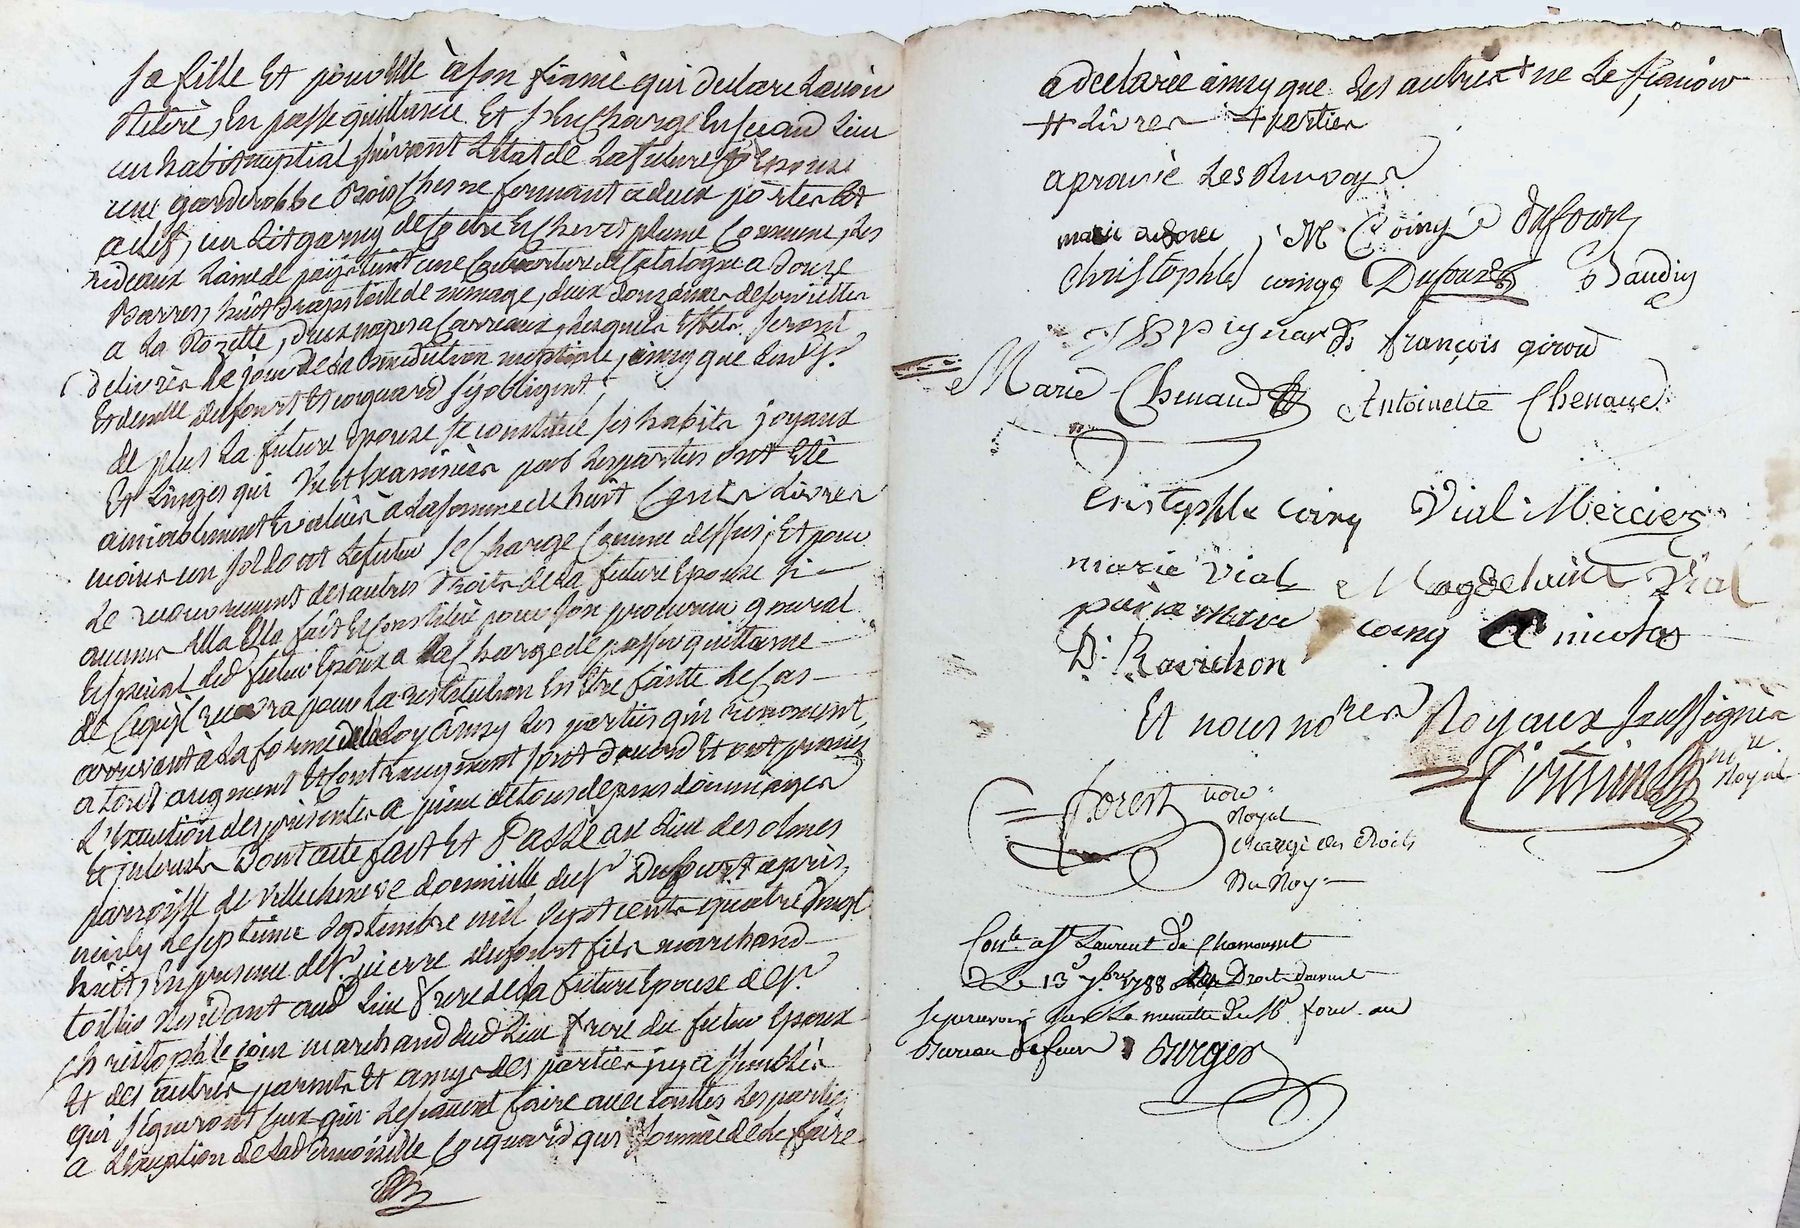 sa fille Et pour elle à son fiancé qui declare L'avoir
Retiré, En passe quittance Et s'En charge En second Lieu
un habit nuptial suivant L'état de La future Epouse
une garderobbe Bois Chesne fermant a deux portes Et
a clef, un Lit garny de Coetre Et Chevet plume Commune, des
rideaux Laine de païs teint une Couverture de Catalogne a douze
Barres, huit draps toille de menage, deux douzaines de serviettes
a La Rozette, deux napes a Carreaux, Lesquels Effets seront
delivrés Le jour de La benediction nuptiale, ainsy que Led. sr.
Et demlle dufourt Et coquard s'y obligent;
de plus La future Epouse se constitue ses habits joyaux
Et Linges qui Vu et Examinées par Les parties ont Eté
amiablement Evalués à La somme de huit Cents Livres
moins un sol dont Le futur se Charge Comme dessus; Et pour
Le recouvrement des autres droits de La future Epouse si
aucuns Elle a Elle fait Et Constitue pour son procureur general
Et special Led. futur Epoux a La Charge de passer quittance
de Ce qu'il recevra pour La restitution En Etre faitte Le Cas
arrivant à La forme de la Loy ainsy Les parties qui renoncent
a tout augment Et Contr'augment sont d'accord Et ont promis
L'Execution des presentes a peine de tous depens dommages
Et jnterests Dont acte fait Et Passé au Lieu des olmes
parroisse de Villechenève domicille du sr Dufourt après
midy Le septieme septembre mil sept cents quatre Vingt
huit, En presence de sr pierre dufourt fils marchand
toillier Residant aud. Lieu frere de La future Epouse de sr.
christophle coin marchand dud. Lieu frere du futur Epoux
Et des autres parents Et amys des parties jcy assemblés
qui signeront Ceux qui Le sçavent faire avec touttes Les parties
a L'Exception de Lad. demoiselle Coquard qui sommée de Le faire
a declarée ainsy que Les autres + ne Le sçavoir
# Livres + parties
aprouvé Les Renvoys
marie dufour M Coing Dufourt
christophle coingt Dufourt Baudin
JB pignard françois girou
Marie Chenaud Antoinette Chenaud
Cristophle coing Vial Mercier
marie Vial Magdelaine Vial
pierre coing nicolas
D. Ravichon
Et nous nores Royaux soussignés
nre. Royal
Forest nore
Royal
chargé des droits
du Roy
Conle a St Laurent de Chamousset
Le 13 7bre 1788 Les Droits davant
se percevoir sur La minutte du Sr. forest au
Bureau de feurs Burger